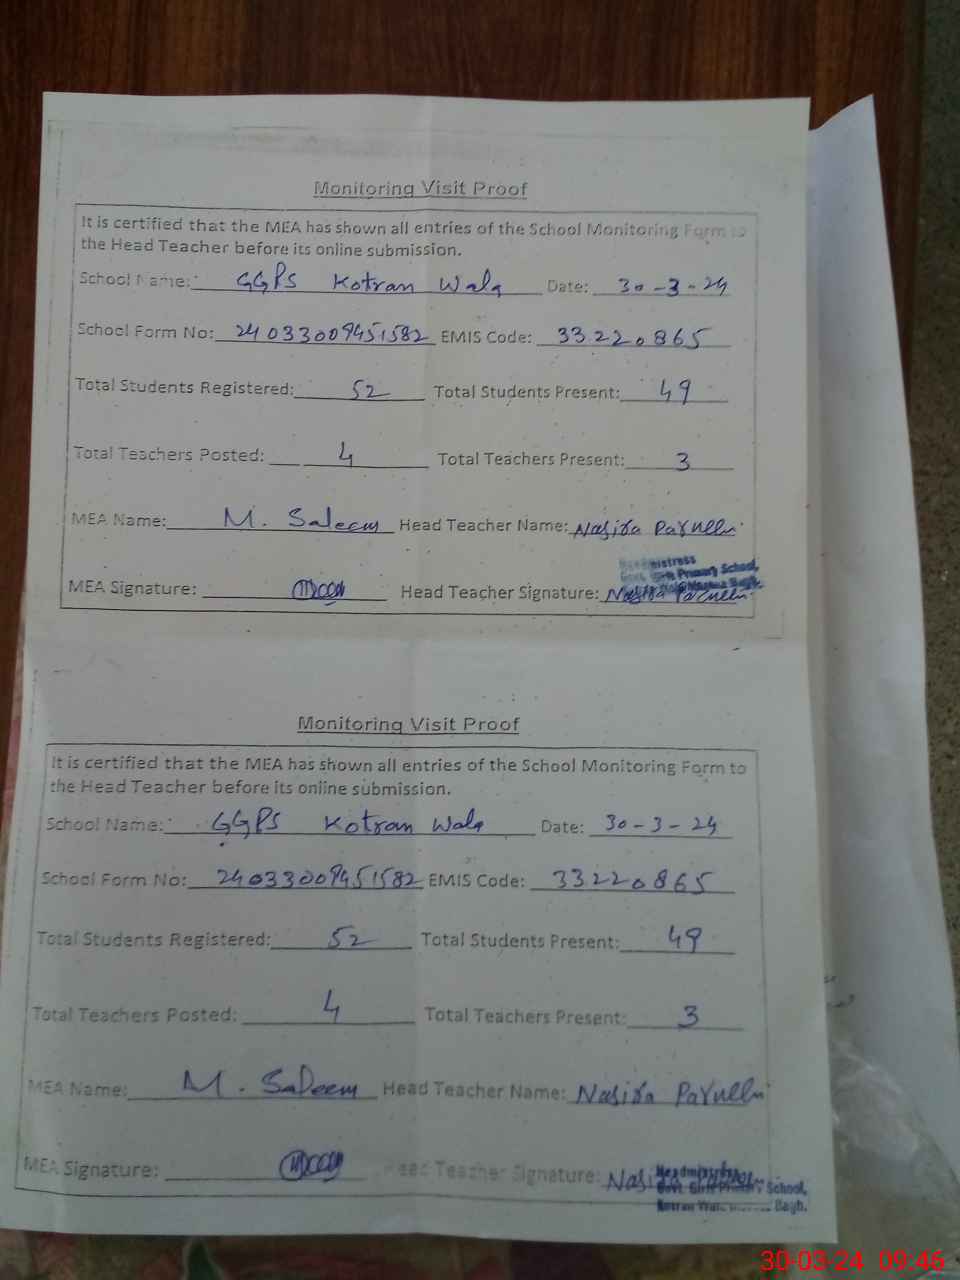 Monitoring Visit Proof
It is certified that the MEA has shown all entries of the School Monitoring Form to
the Head Teacher before its online submission.
School Name: GGPS Kotran Wala Date: 30-3-24
School Form No: 24033009451582 EMIS Code: 33220865
Total Students Registered: 52 Total Students Present: 49
Total Teachers Posted: 4 Total Teachers Present: 3
MEA Name: M. Saleem Head Teacher Name: Nasira Parveen
Headmistress
Govt. Girls Primary School,
MEA Signature: Head Teacher Signature: Nasira Parveen
Monitoring Visit Proof
It is certified that the MEA has shown all entries of the School Monitoring Form to
the Head Teacher before its online submission.
School Name: GGPS Kotran Wala Date: 30-3-24
School Form No: 24033009451582 EMIS Code: 33220865
Total Students Registered: 52 Total Students Present: 49
Total Teachers Posted: 4 Total Teachers Present: 3
MEA Name: M. Saleem Head Teacher Name: Nasira Parveen
MEA Signature: Head Teacher Signature: Nasira
Headmistress
Govt. Girls Primary School,
Kotran Wala Bagh.
30-03-24 09:46